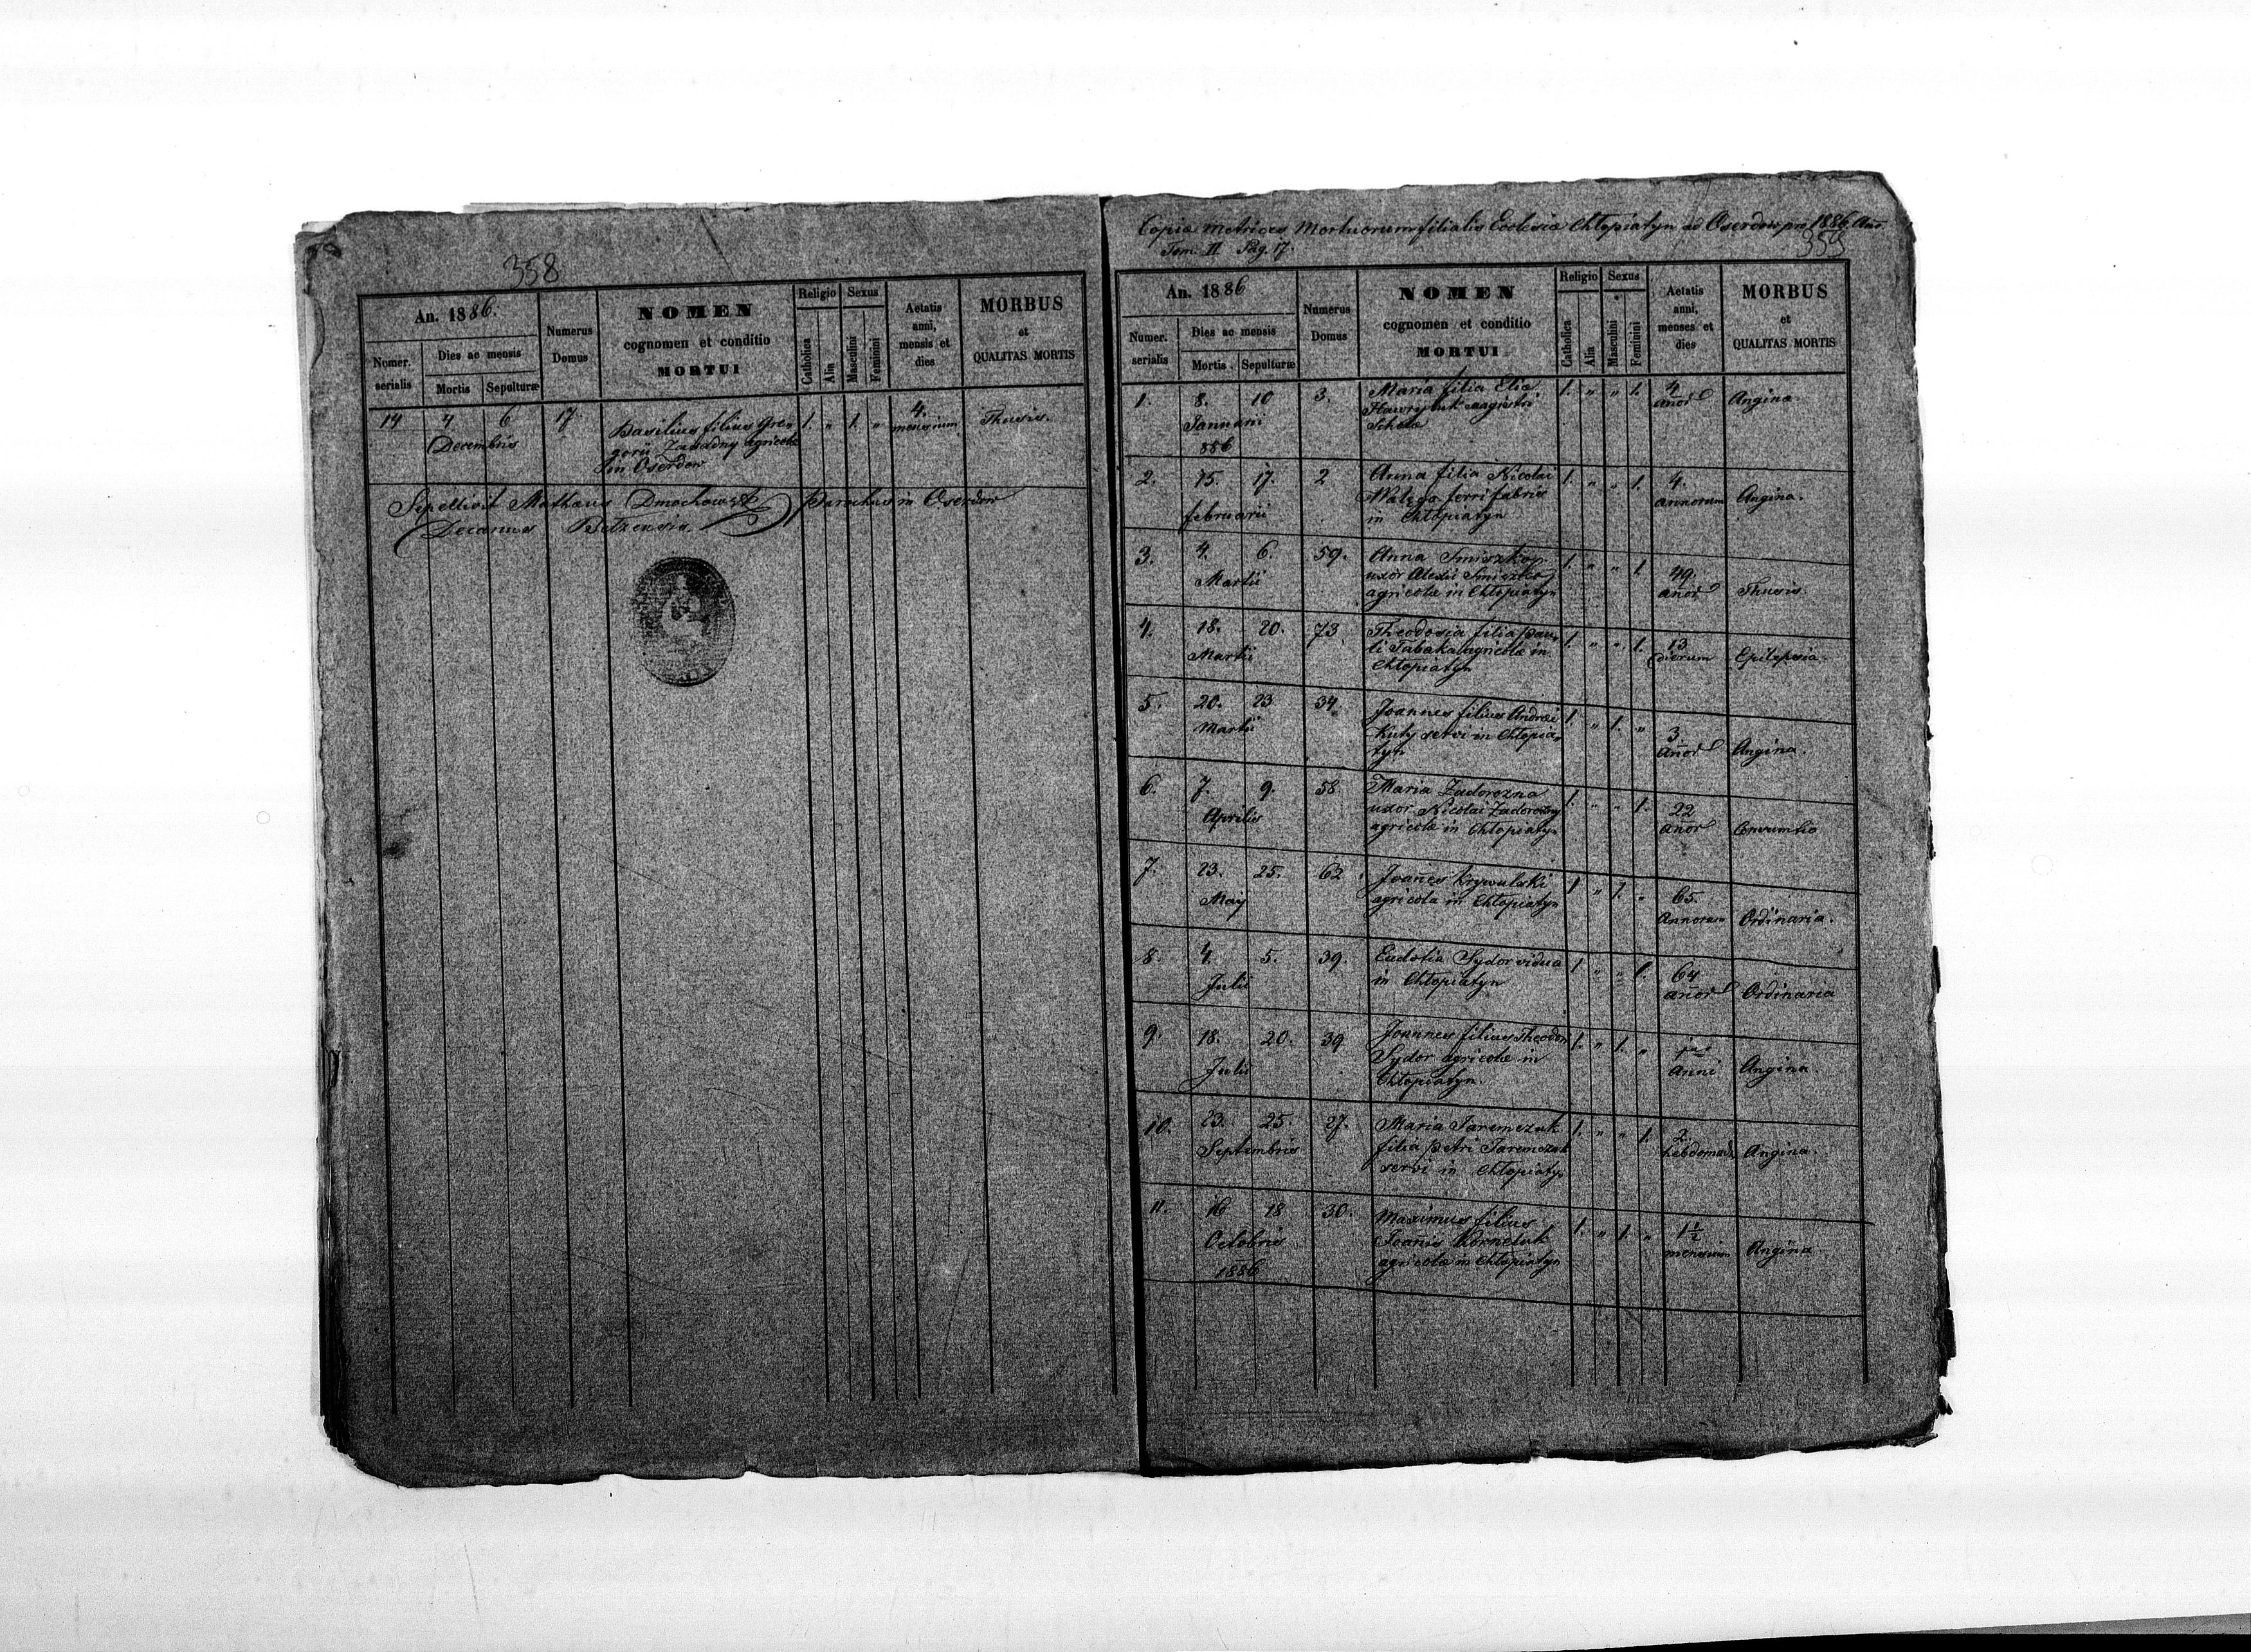 358
An. 1886.
Numerus Domus
NOMEN
cognomen et conditio
MORTUI
Religio
Sexus
Catholica
Alia
Masculini
Feminini
Aetatis anni, mensis et dies
MORBUS
et
QUALITAS MORTIS
Nomer. serialis
Dies ac mensis
Mortis
Sepulturæ
14 4 6 17 Basilius filius Gre- 1. " 1. " 4. Thusis.
Decembris gorii agricolæ mensium
in Oserdow
Sepellivit Mathæus Dmochowski Parochus in Oserdow
Decanus Belzensis
Copia metrices Mortuorum filialis Ecclesiæ Chłopiatyn ad Oserdow pro 1886 Ano
Tom. II. Pag. 17.
359
An. 1886
Numerus Domus
NOMEN
cognomen et conditio
MORTUI
Religio
Sexus
Catholica
Alia
Masculini
Feminini
Aetatis anni, menses et dies
MORBUS
et
QUALITAS MORTIS
Numer. serialis
Dies ac mensis
Mortis
Sepulturæ
1. 8. 10 3. Maria filia Eliæ 1. " " 1. 4 Angina.
Januarii Hawryluk magistri anor
886 Scholæ
2. 15. 17. 2 Anna filia Nicolai 1. " " 1. 4. Angina.
februarii ferri fabris annorum
in Chłopiatyn
3. 4. 6. 59. Anna Smiszko 1. " " 1 49. Thusis.
Martii uxor Alexii Smiszko anor
agricolæ in Chłopiatyn
4. 18. 20. 73 Theodosia filia Pau- 1. " " 1. 13 Epilepsia.
Martii li Tabaka agricolæ in dierum
Chłopiatyn
5. 20. 23 34. Joannes filius Andreæ 1. " 1. " 3 Angina.
Martii Kuty servi in Chłopia- anor
tyn
6. 7. 9. 58 Maria Zadorozna 1. " " 1. 22
Aprilis uxor Nicolai Zadorozny anor
agricolæ in Chłopiatyn
7. 23. 25. 62 Joanes Krywulski 1 " 1. " 65. Ordinaria.
May agricola in Chłopiatyn Annorum
8 4. 5. 39. Eudotia Sydor vidua 1 " " 1. 64 Ordinaria
Julii in Chłopiatyn anor
9. 18. 20. 39 Joannes filius Theodori 1. " 1. " Angina
Julii Sydor agricolæ in Anni
Chłopiatyn.
10. 23. 25. 27. Maria Jaremczuk 1. " " 1. 2 Angina.
Septembris filia Petri Jaremczuk hebdomad.
servi in Chłopiatyn
11. 16 18 30. Maximus filius 1. " 1. " 1½ Angina
Octobris Joanis Korneluk mensium
1886 agricolæ in Chłopiatyn